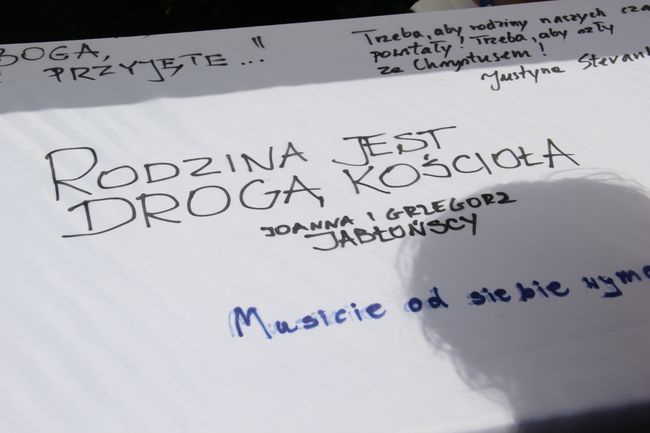 BOGA,
PRZYJĘTE ..."
Trzeba, aby rodziny naszych
powstały! Trzeba, aby szły
za Chrystusem!
Justyna
RODZINA JEST
DROGĄ KOŚCIOŁA
JOANNA I GRZEGORZ
JABŁOŃSCY
Musicie od siebie